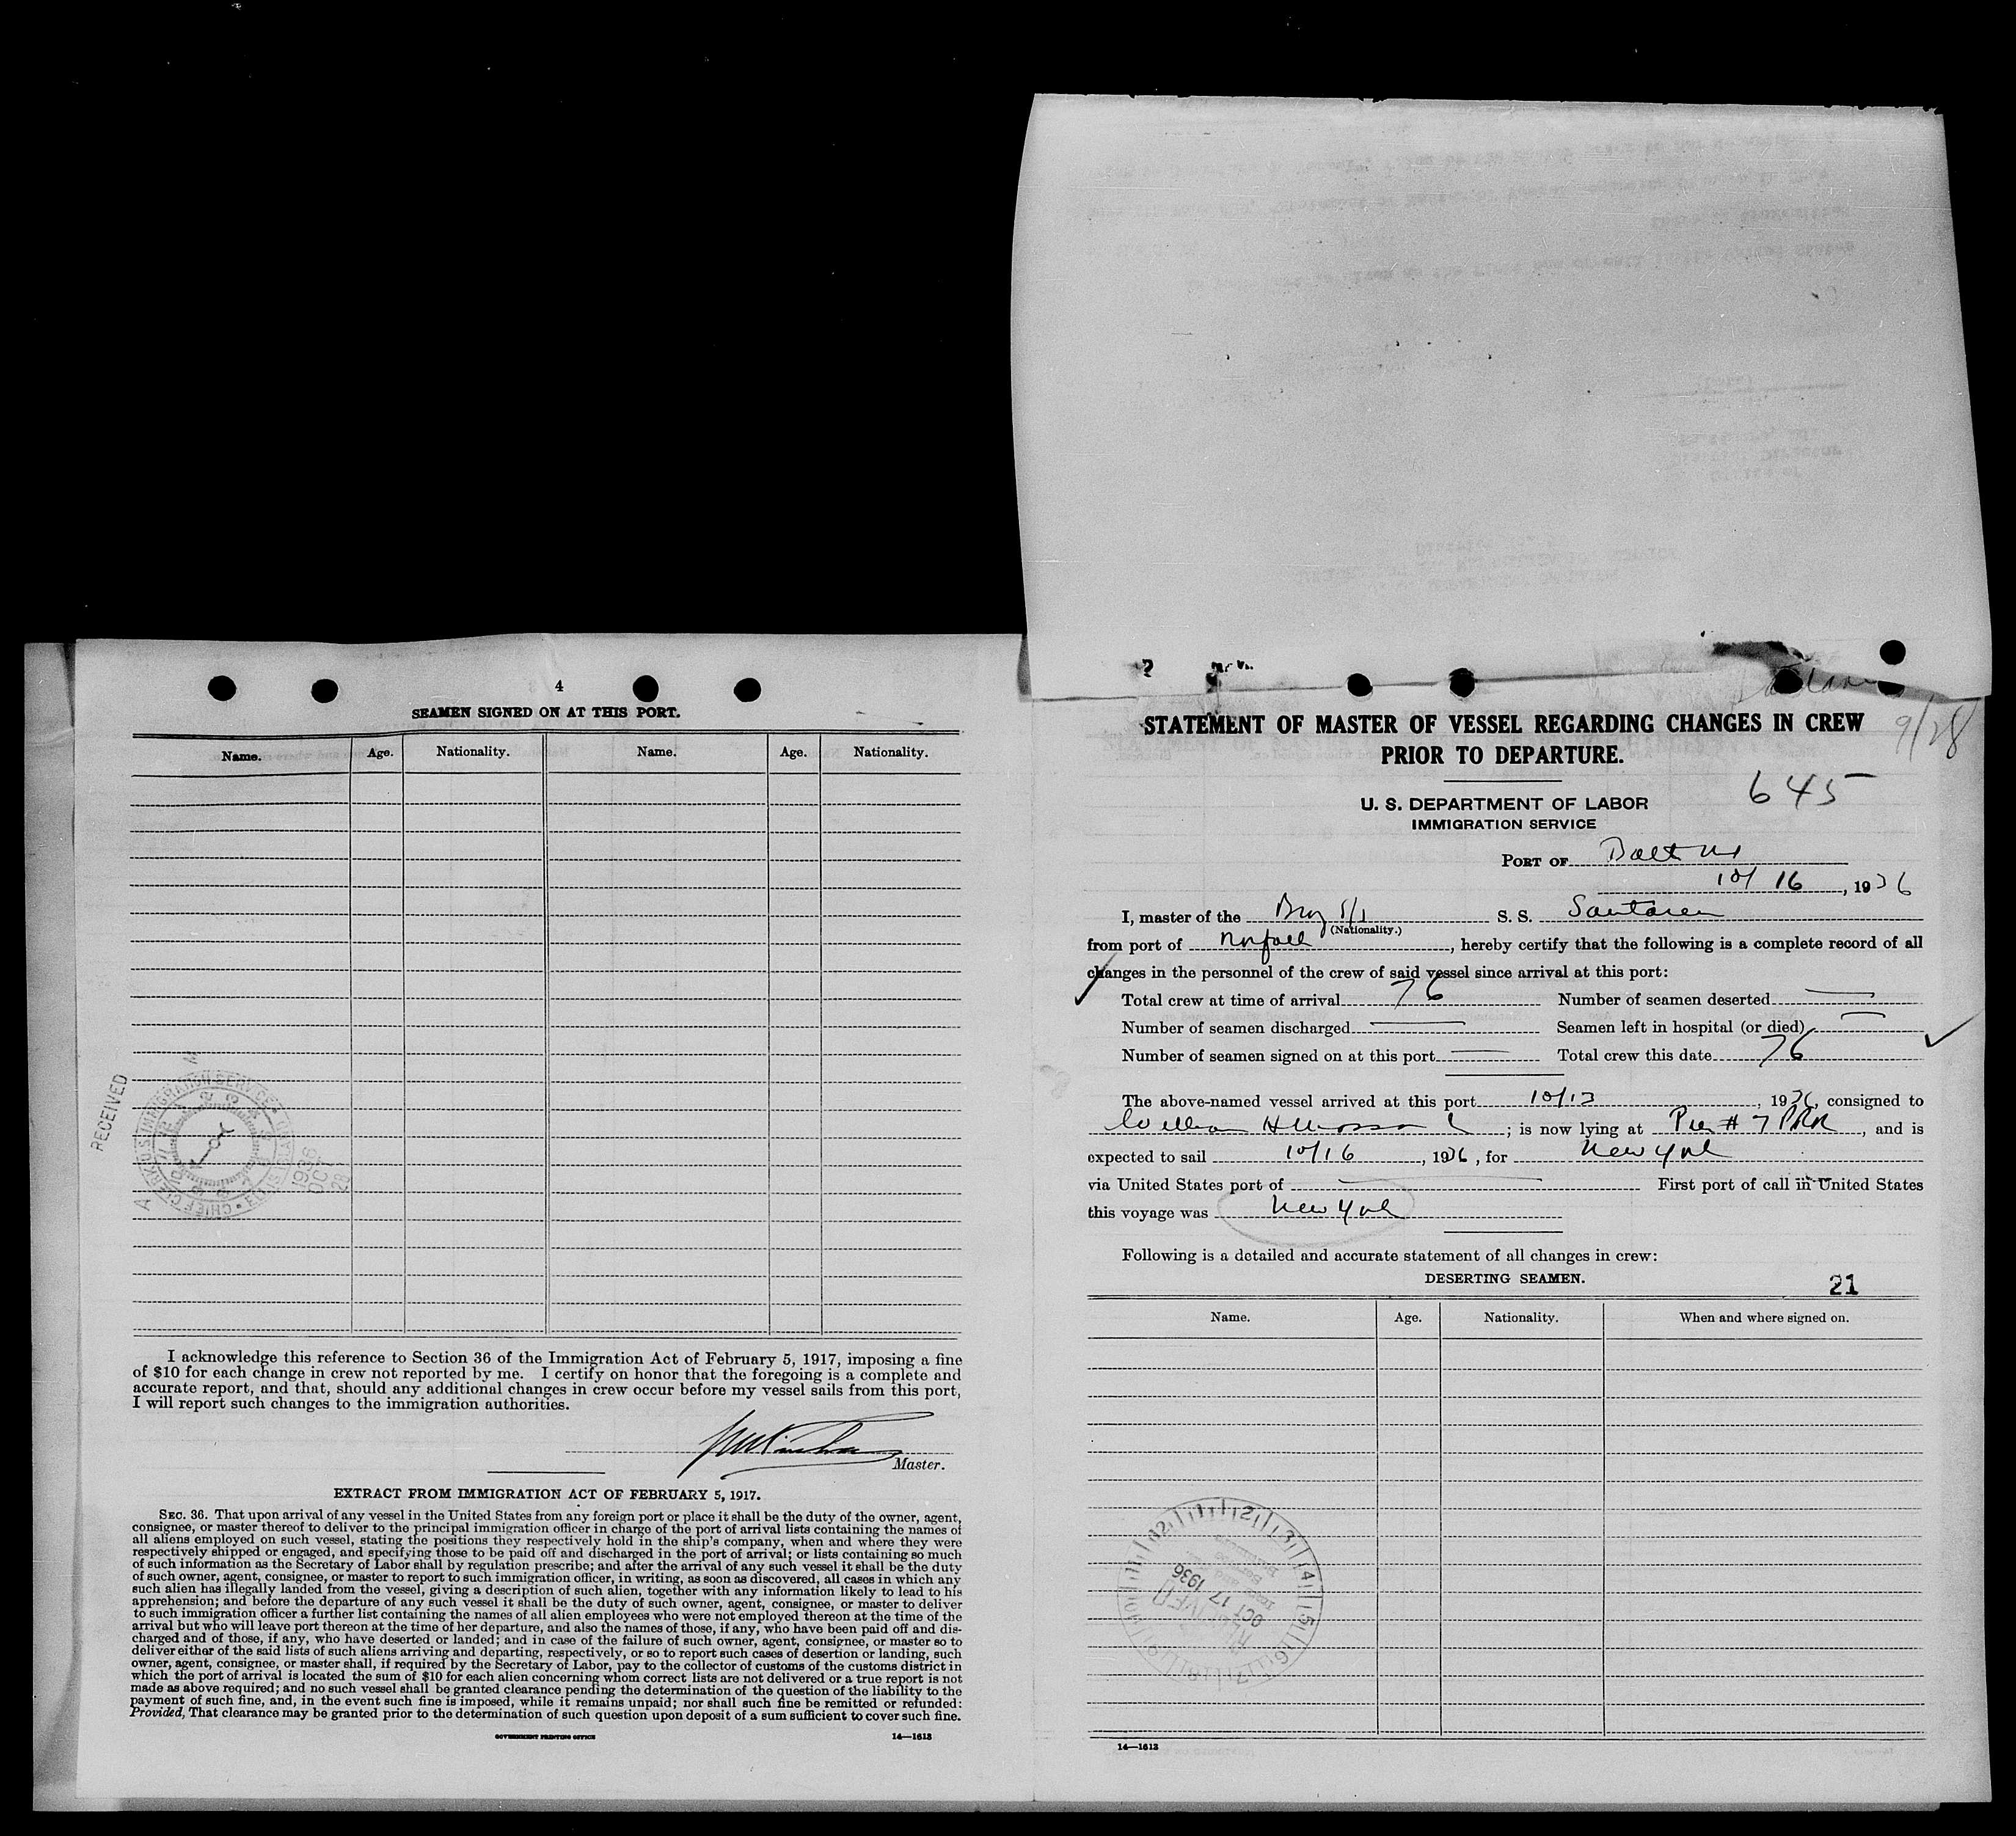 4
SEAMEN SIGNED ON AT THIS PORT.
Name. Age. Nationality. Name. Age. Nationality.
RECEIVED
I acknowledge this reference to Section 36 of the Immigration Act of February 5, 1917, imposing a fine
of $10 for each change in crew not reported by me. I certify on honor that the foregoing is a complete and
accurate report, and that, should any additional changes in crew occur before my vessel sails from this port,
I will report such changes to the immigration authorities.
Master.
EXTRACT FROM IMMIGRATION ACT OF FEBRUARY 5, 1917.
SEC. 36. That upon arrival of any vessel in the United States from any foreign port or place it shall be the duty of the owner, agent,
consignee, or master thereof to deliver to the principal immigration officer in charge of the port of arrival lists containing the names of
all aliens employed on such vessel, stating the positions they respectively hold in the ship's company, when and where they were
respectively shipped or engaged, and specifying those to be paid off and discharged in the port of arrival; or lists containing so much
of such information as the Secretary of Labor shall by regulation prescribe; and after the arrival of any such vessel it shall be the duty
of such owner, agent, consignee, or master to report to such immigration officer, in writing, as soon as discovered, all cases in which any
such alien has illegally landed from the vessel, giving a description of such alien, together with any information likely to lead to his
apprehension; and before the departure of any such vessel it shall be the duty of such owner, agent, consignee, or master to deliver
to such immigration officer a further list containing the names of all alien employees who were not employed thereon at the time of the
arrival but who will leave port thereon at the time of her departure, and also the names of those, if any, who have been paid off and dis-
charged and of those, if any, who have deserted or landed; and in case of the failure of such owner, agent, consignee, or master so to
deliver either of the said lists of such aliens arriving and departing, respectively, or so to report such cases of desertion or landing, such
owner, agent, consignee, or master shall, if required by the Secretary of Labor, pay to the collector of customs of the customs district in
which the port of arrival is located the sum of $10 for each alien concerning whom correct lists are not delivered or a true report is not
made as above required; and no such vessel shall be granted clearance pending the determination of the question of the liability to the
payment of such fine, and, in the event such fine is imposed, while it remains unpaid; nor shall such fine be remitted or refunded:
Provided, That clearance may be granted prior to the determination of such question upon deposit of a sum sufficient to cover such fine.
GOVERNMENT PRINTING OFFICE 14—1613
STATEMENT OF MASTER OF VESSEL REGARDING CHANGES IN CREW
PRIOR TO DEPARTURE.
9/28
645
U. S. DEPARTMENT OF LABOR
IMMIGRATION SERVICE
PORT OF Balt Md
10/16, 1936
I, master of the Braz S/S S. S. Santarem
(Nationality.)
from port of Norfolk, hereby certify that the following is a complete record of all
changes in the personnel of the crew of said vessel since arrival at this port:
Total crew at time of arrival 76 Number of seamen deserted —
Number of seamen discharged — Seamen left in hospital (or died) —
Number of seamen signed on at this port — Total crew this date 76
The above-named vessel arrived at this port 10/13, 1936, consigned to
William H; is now lying at Pier # 7 PRR, and is
expected to sail 10/16, 1936, for New York
via United States port of — First port of call in United States
this voyage was New York
Following is a detailed and accurate statement of all changes in crew:
DESERTING SEAMEN. 21
Name. Age. Nationality. When and where signed on.
RECEIVED
OCT 17 1936
14—1613